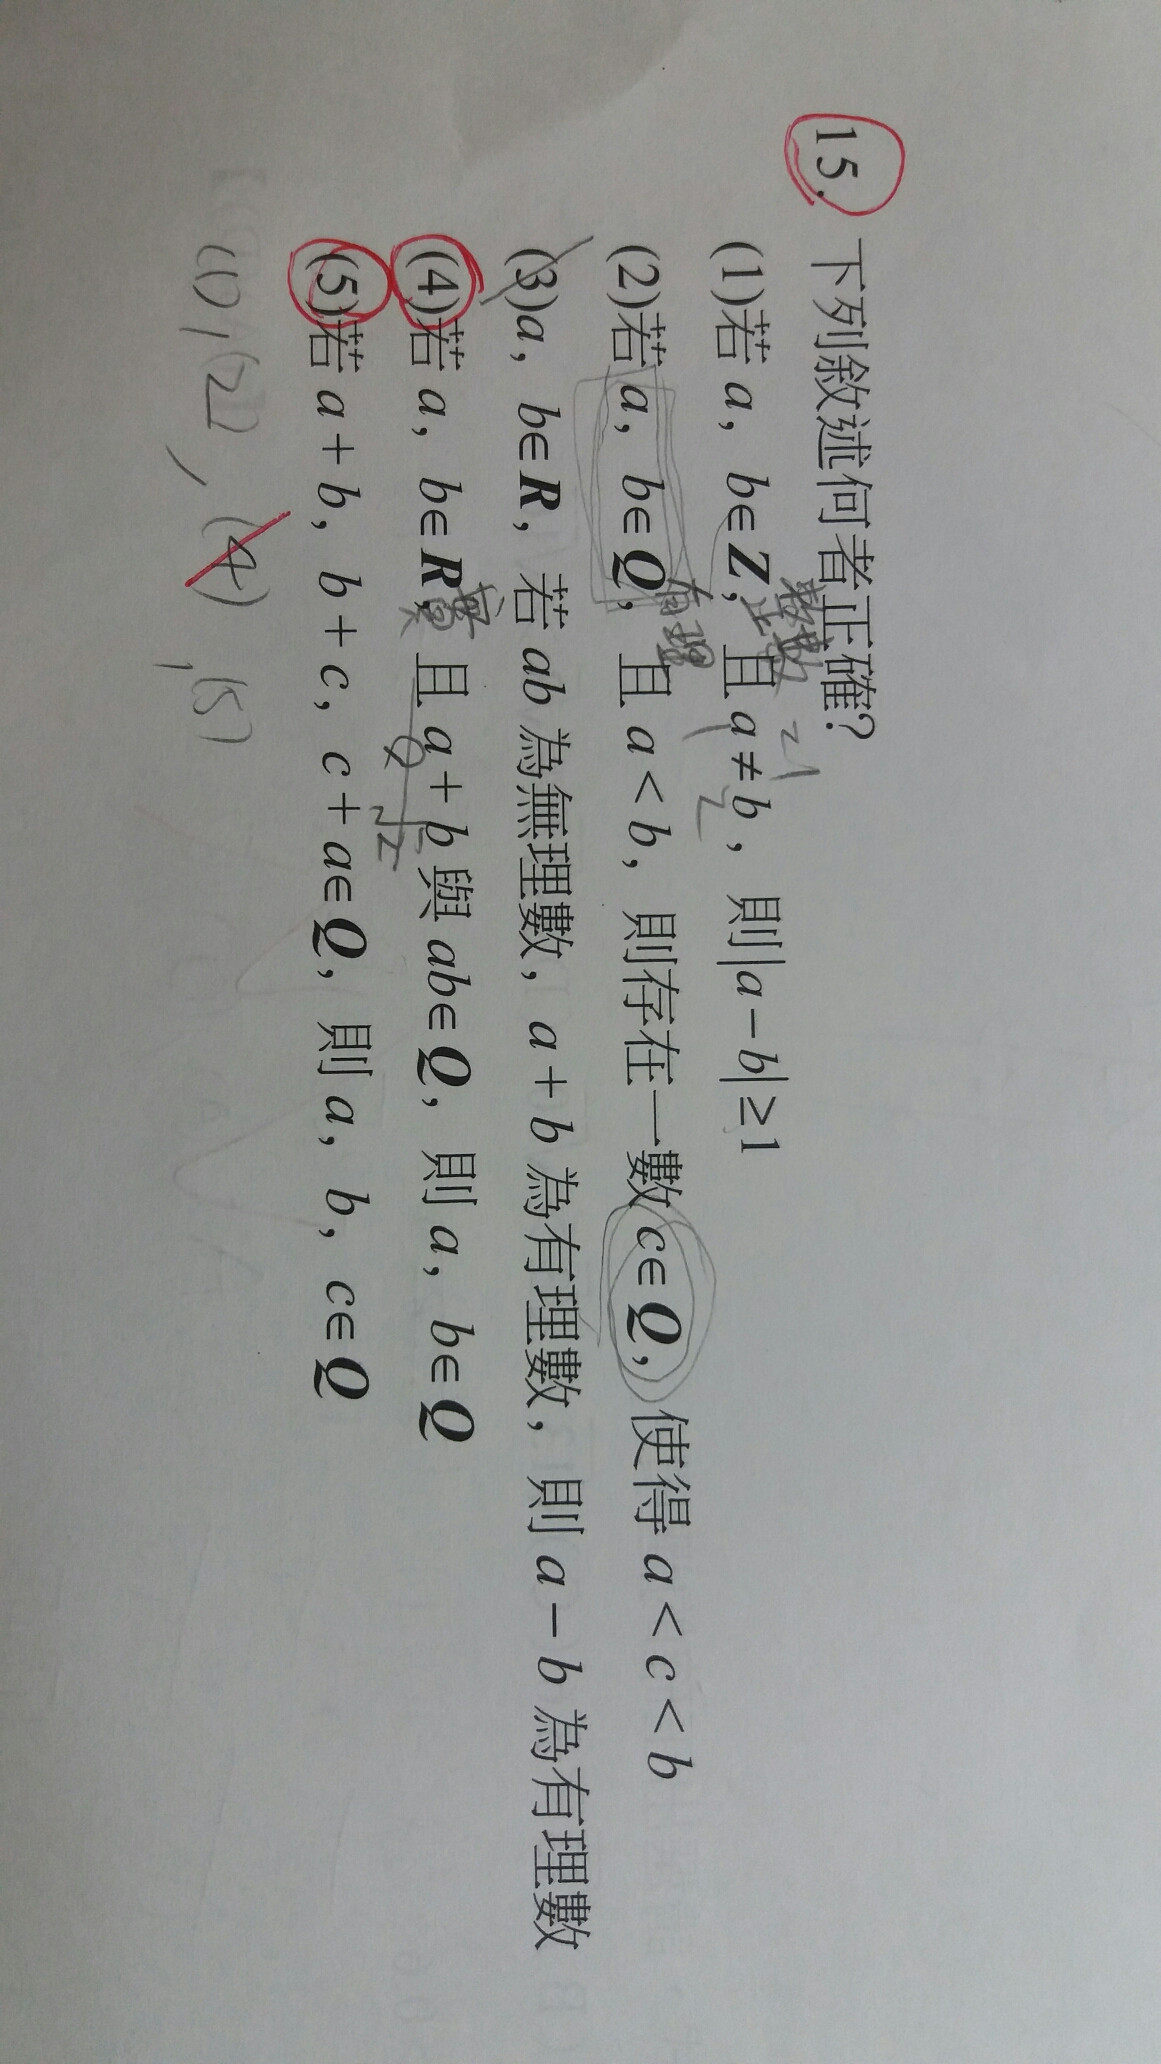 15. 下列敘述何者正確?
(1)若 a, b∈Z, 且 a≠b, 則|a−b|≥1
整數
(2)若 a, b∈Q, 且 a<b, 則存在一數 c∈Q, 使得 a<c<b
有理
(3)a, b∈R, 若 ab 為無理數, a+b 為有理數, 則 a−b 為有理數
(4)若 a, b∈R, 且 a+b 與 ab∈Q, 則 a, b∈Q
實
(5)若 a+b, b+c, c+a∈Q, 則 a, b, c∈Q
(1), (2), (4), (5)